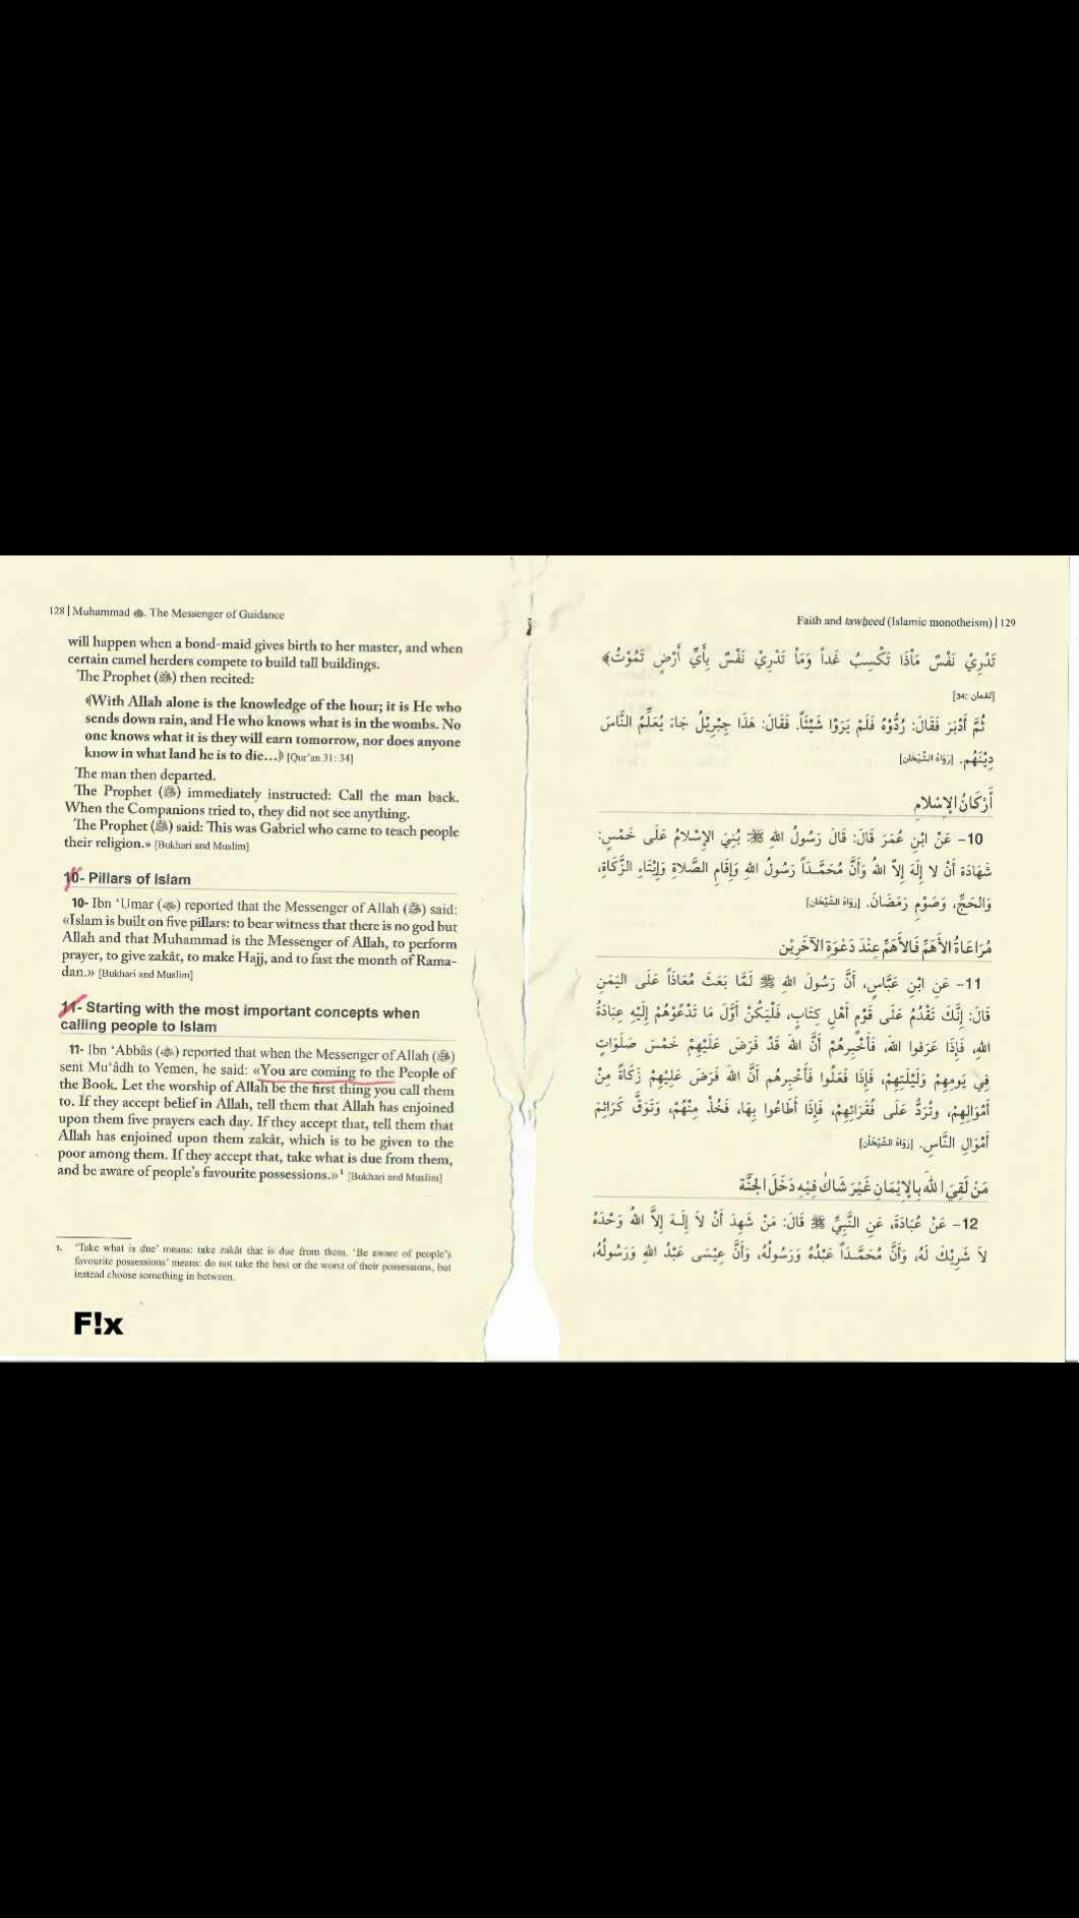 128 | Muhammad ﷺ. The Messenger of Guidance
will happen when a bond-maid gives birth to her master, and when
certain camel herders compete to build tall buildings.
The Prophet (ﷺ) then recited:
﴾With Allah alone is the knowledge of the hour; it is He who
sends down rain, and He who knows what is in the wombs. No
one knows what it is they will earn tomorrow, nor does anyone
know in what land he is to die...﴿ [Qur'an 31: 34]
The man then departed.
The Prophet (ﷺ) immediately instructed: Call the man back.
When the Companions tried to, they did not see anything.
The Prophet (ﷺ) said: This was Gabriel who came to teach people
their religion.» [Bukhari and Muslim]
10- Pillars of Islam
10- Ibn ‘Umar () reported that the Messenger of Allah (ﷺ) said:
«Islam is built on five pillars: to bear witness that there is no god but
Allah and that Muhammad is the Messenger of Allah, to perform
prayer, to give zakât, to make Hajj, and to fast the month of Rama-
dan.» [Bukhari and Muslim]
11- Starting with the most important concepts when
calling people to Islam
11- Ibn ‘Abbâs () reported that when the Messenger of Allah (ﷺ)
sent Mu‘âdh to Yemen, he said: «You are coming to the People of
the Book. Let the worship of Allah be the first thing you call them
to. If they accept belief in Allah, tell them that Allah has enjoined
upon them five prayers each day. If they accept that, tell them that
Allah has enjoined upon them zakât, which is to be given to the
poor among them. If they accept that, take what is due from them,
and be aware of people's favourite possessions.»¹ [Bukhari and Muslim]
1. ‘Take what is due’ means: take zakât that is due from them. ‘Be aware of people's
favourite possessions’ means: do not take the best or the worst of their possessions, but
instead choose something in between.
F!x
Faith and tawḥeed (Islamic monotheism) | 129
تَدْرِيْ نَفْسٌ مَاْذَا تَكْسِبُ غَداً وَمَاْ تَدْرِيْ نَفْسٌ بِأَيِّ أَرْضٍ تَمُوْتُ﴾
[لقمان: 34]
ثُمَّ أَدْبَرَ فَقَالَ: رُدُّوْهُ فَلَمْ يَرَوْا شَيْئَاً. فَقَالَ: هَذَا جِبْرِيْلُ جَاءَ يُعَلِّمُ النَّاسَ
دِيْنَهُم. [رَوَاهُ الشَّيْخَان]
أَرْكَانُ الإِسْلامِ
10- عَنْ ابْنِ عُمَرَ قَالَ: قَالَ رَسُولُ اللهِ ﷺ: بُنِيَ الإِسْلامُ عَلَى خَمْسٍ:
شَهَادَة أَنْ لا إِلَهَ إِلاّ اللهُ وَأَنَّ مُحَمَّـدَاً رَسُولُ اللهِ وَإِقَامِ الصَّلاةِ وَإِيْتَاءِ الزَّكَاةِ،
وَالحَجِّ، وَصَوْمِ رَمَضَانَ. [رَوَاهُ الشَّيْخَان]
مُرَاعَاةُ الأَهَمِّ فَالأَهَمِّ عِنْدَ دَعْوَةِ الآخَرِيْن
11- عَنِ ابْنِ عَبَّاسٍ، أَنَّ رَسُولَ اللهِ ﷺ لَمَّا بَعَثَ مُعَاذَاً عَلَى اليَمَنِ
قَالَ: إِنَّكَ تَقْدُمُ عَلَى قَوْمٍ أَهْلِ كِتَابٍ، فَلْيَكُنْ أَوَّلَ مَا تَدْعُوْهُمْ إِلَيْهِ عِبَادَةُ
اللهِ، فَإِذَا عَرَفوا اللهَ، فَأَخْبِرهُمْ أَنَّ اللهَ قَدْ فَرَضَ عَلَيْهِمْ خَمْسَ صَلَوَاتٍ
فِي يَومِهِمْ وَلَيْلَتِهِمْ، فَإِذَا فَعَلُوا فَأَخْبِرهُم أَنَّ اللهَ فَرَضَ عَلِيْهِمْ زَكَاةً مِنْ
أَمْوَالِهِمْ، وتُرَدُّ عَلَى فُقَرَائِهِمْ، فَإِذَا أَطَاعُوا بِهَا، فَخُذْ مِنْهُمْ، وَتَوَقَّ كَرَائِمَ
أَمْوَالِ النَّاسِ. [رَوَاهُ الشَّيْخَان]
مَنْ لَقِيَ اللهَ بِالإِيْمَانِ غَيْرَ شَاكٍ فِيْهِ دَخَلَ الجَنَّة
12- عَنْ عُبَادَةَ، عَنِ النَّبِيِّ ﷺ قَالَ: مَنْ شَهِدَ أَنْ لاَ إِلَـهَ إِلاَّ اللهُ وَحْدَهُ
لاَ شَرِيْكَ لَهُ، وَأَنَّ مُحَمَّـدَاً عَبْدُهُ وَرَسُولُهُ، وَأَنَّ عِيْسَى عَبْدُ اللهِ وَرَسُولُهُ،